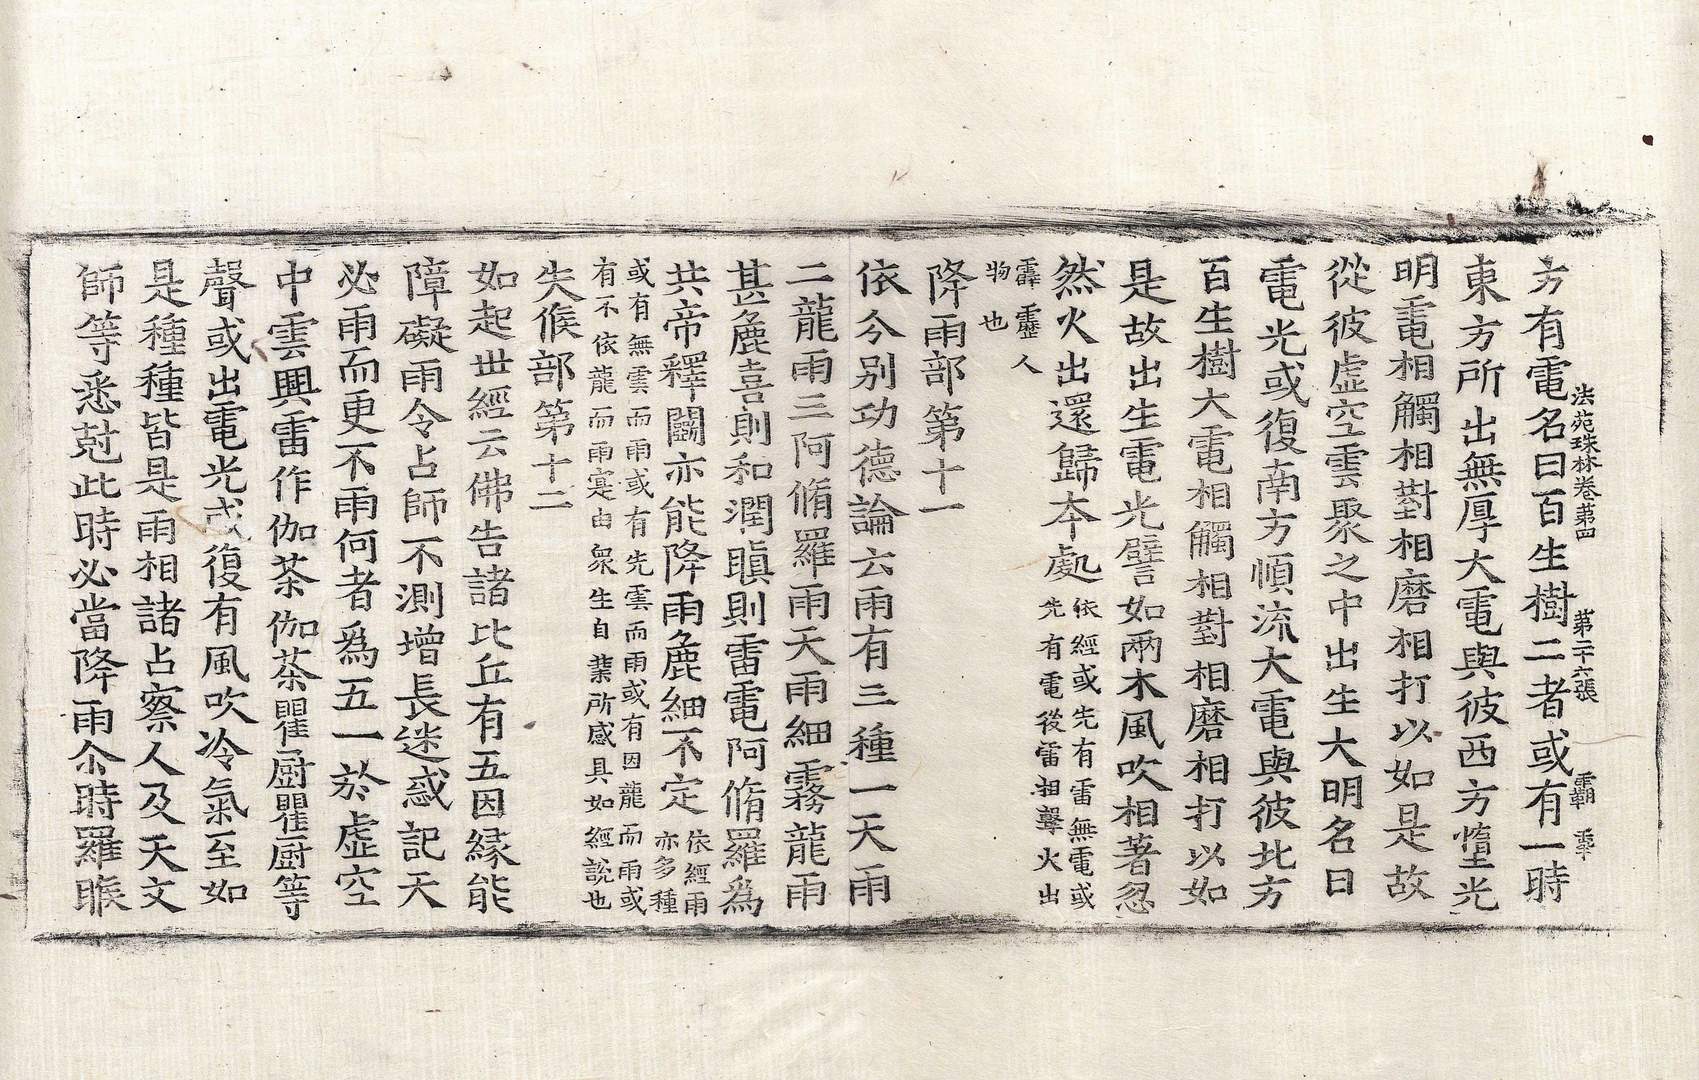 法苑珠林卷苐四　苐二十六張　霸
方有電名曰百生樹二者或有一時
東方所出無厚大電與彼西方墮光
明電相觸相對相磨相打以如是故
從彼虛空雲聚之中出生大明名曰
電光或復南方順流大電與彼北方
百生樹大電相觸相對相磨相打以如
是故出生電光譬如兩木風吹相著忽
然火出還歸本處
依經或先有雷無電或
先有電後雷相擊火出
霹靂人
物也
降雨部第十一
依今別功德論云雨有三種一天雨
二龍雨三阿脩羅雨天雨細霧龍雨
甚麁喜則和潤瞋則雷電阿脩羅為
共帝釋鬪亦能降雨麁細不定
依經雨
亦多種
或有無雲而雨或有先雲而雨或有因龍而雨或
有不依龍而雨寔由衆生自業所感具如經說也
失候部第十二
如起世經云佛告諸比丘有五因緣能
障礙雨令占師不測增長迷惑記天
必雨而更不雨何者爲五一於虛空
中雲興雷作伽茶伽茶瞿厨瞿厨等
聲或出電光或復有風吹冷氣至如
是種種皆是雨相諸占察人及天文
師等悉尅此時必當降雨尒時羅睺